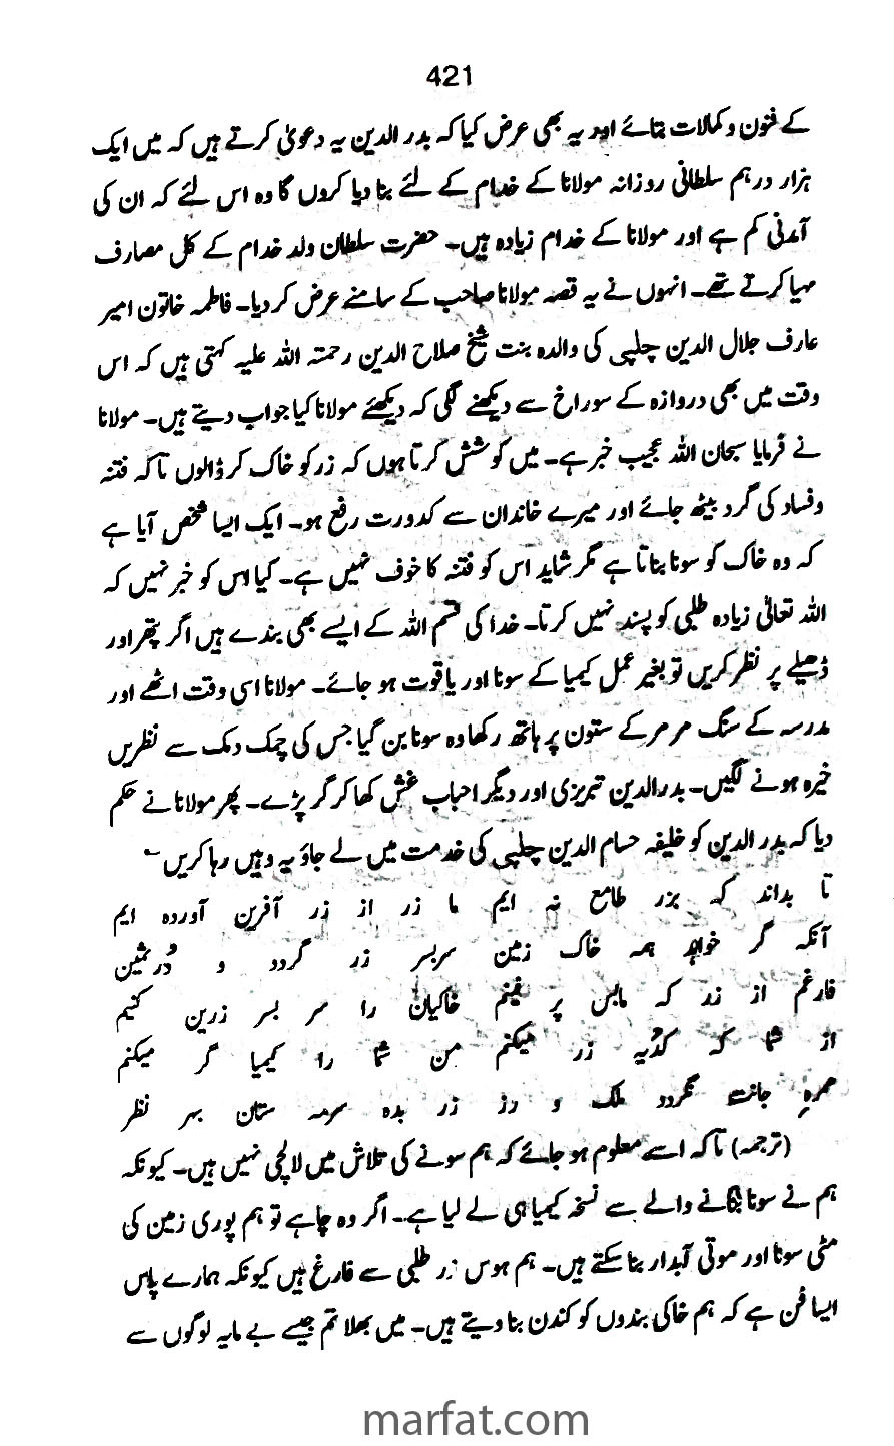 421
کے فنون و کمالات بتائے اور یہ بھی عرض کیا کہ بدر الدین یہ دعویٰ کرتے ہیں کہ میں ایک
ہزار درہم سلطانی روزانہ مولانا کے خدام کے لئے بنا دیا کروں گا وہ اس لئے کہ ان کی
آمدنی کم ہے اور مولانا کے خدام زیادہ ہیں۔ حضرت سلطان ولد خدام کے کل مصارف
مہیا کرتے تھے۔ انہوں نے یہ قصہ مولانا صاحب کے سامنے عرض کر دیا۔ فاطمہ خاتون امیر
عارف جلال الدین چلپی کی والدہ بنت شیخ صلاح الدین رحمتہ اللہ علیہ کہتی ہیں کہ اس
وقت میں بھی دروازہ کے سوراخ سے دیکھنے لگی کہ دیکھئے مولانا کیا جواب دیتے ہیں۔ مولانا
نے فرمایا سبحان اللہ عجیب خبر ہے۔ میں کوشش کرتا ہوں کہ زر کو خاک کر ڈالوں تاکہ فتنہ
وفساد کی گرد بیٹھ جائے اور میرے خاندان سے کدورت رفع ہو۔ ایک ایسا شخص آیا ہے
کہ وہ خاک کو سونا بناتا ہے مگر شاید اس کو فتنہ کا خوف نہیں ہے۔ کیا اس کو خبر نہیں کہ
اللہ تعالیٰ زیادہ طلبی کو پسند نہیں کرتا۔ خدا کی قسم اللہ کے ایسے بھی بندے ہیں اگر پتھر اور
ڈھیلے پر نظر کریں تو بغیر عمل کیمیا کے سونا اور یاقوت ہو جائے۔ مولانا اسی وقت اٹھے اور
مدرسہ کے سنگ مرمر کے ستون پر ہاتھ رکھا وہ سونا بن گیا جس کی چمک دمک سے نظریں
خیرہ ہونے لگیں۔ بدرالدین تبریزی اور دیگر احباب غش کھا کر گر پڑے۔ پھر مولانا نے حکم
دیا کہ بدر الدین کو خلیفہ حسام الدین چلپی کی خدمت میں لے جاؤ یہ وہیں رہا کریں ؎
تا بداند کہ بزر طامع نہ ایم ما زر از زر آفرین آوردہ ایم
آنکہ گر خواہد ہمہ خاک زمین سربسر زر گردد و دُر ثمین
فارغم از زر کہ مابس پر فینم خاکیان را سر بسر زرین کنیم
از شما کہ کدُیہ زر میکنم من شما را کیمیا گر میکنم
ہمرہِ جانت نگردد ملک و زر زر بدہ سرمہ ستان بہر نظر
(ترجمہ) تاکہ اسے معلوم ہو جائے کہ ہم سونے کی تلاش میں لالچی نہیں ہیں۔ کیونکہ
ہم نے سونا بنانے والے سے نسخہ کیمیا ہی لے لیا ہے۔ اگر وہ چاہے تو ہم پوری زمین کی
مٹی سونا اور موتی آبدار بنا سکتے ہیں۔ ہم ہوس زر طلبی سے فارغ ہیں کیونکہ ہمارے پاس
ایسا فن ہے کہ ہم خاکی بندوں کو کندن بنا دیتے ہیں۔ میں بھلا تم جیسے بے مایہ لوگوں سے
marfat.com